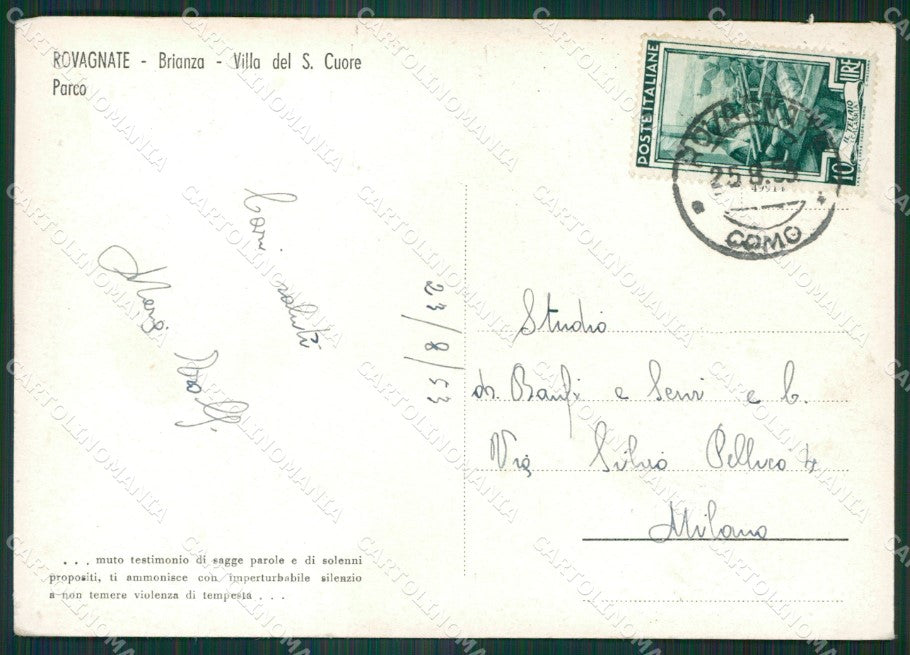 ROVAGNATE - Brianza - Villa del S. Cuore
Parco
POSTE ITALIANE
LIRE
10
25.8.53
49914
COMO
Cari saluti
Maria
23/8/53
Studio
dr. Banfi e Servi e C.
Via Silvio Pellico 4
Milano
. . . muto testimonio di sagge parole e di solenni
propositi, ti ammonisce con imperturbabile silenzio
a non temere violenza di tempesta . . .
CARTOLINOMANIA